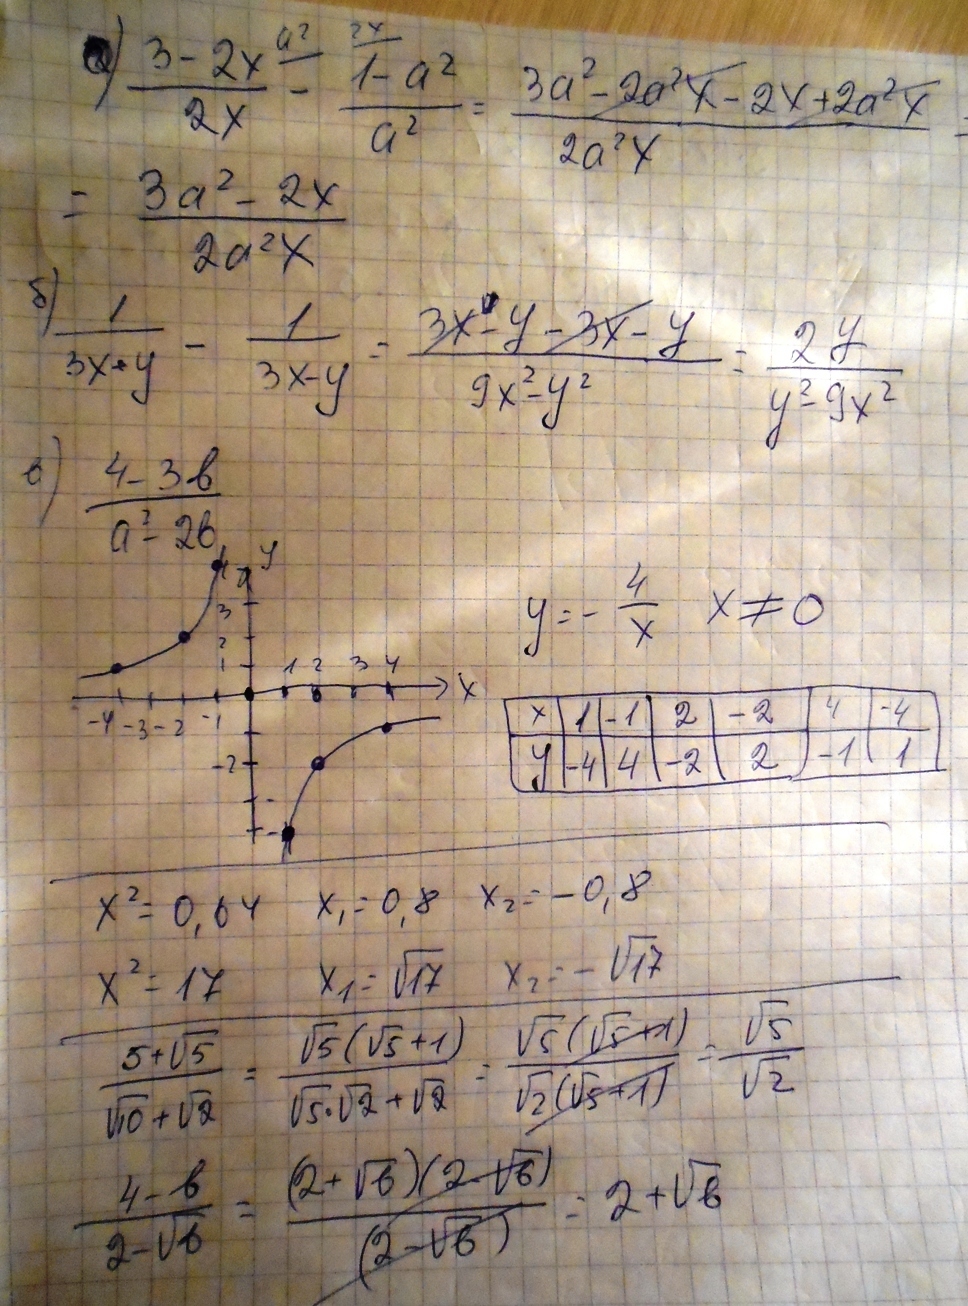 а) (3 - 2x)/(2x) ^a² - (1 - a²)/(a²) ^2x = (3a² - 2a²x - 2x + 2a²x)/(2a²x) =
= (3a² - 2x)/(2a²x)
б) 1/(3x+y) - 1/(3x-y) = (3x - y - 3x - y)/(9x² - y²) = 2y/(y² - 9x²)
в) (4 - 3b)/(a² - 2b)
y = -4/x x ≠ 0
y 4 3 2 1
1 2 3 4 x
-4 -3 -2 -1
-2
x 1 -1 2 -2 4 -4
y -4 4 -2 2 -1 1
x² = 0,64 x₁ = 0,8 x₂ = -0,8
x² = 17 x₁ = √17 x₂ = -√17
(5+√5)/(√10+√2) = (√5(√5+1))/(√5·√2+√2) = (√5(√5+1))/(√2(√5+1)) = √5/√2
(4-b)/(2-√b) = ((2+√b)(2-√b))/((2-√b)) = 2+√b